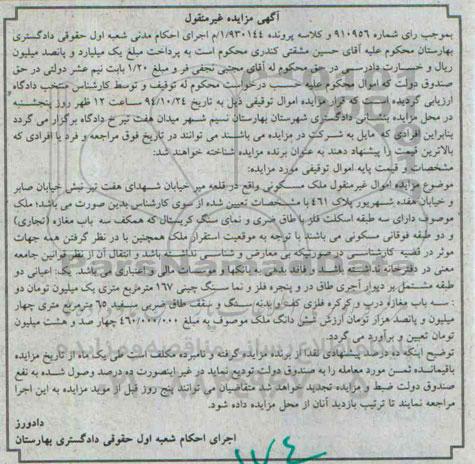 آگهی مزایده غیرمنقول
بموجب رای شماره ۹۱۰۹۵۶ و کلاسه پرونده ۱/۹۳۰۱۴۴م اجرای احکام مدنی شعبه اول حقوقی دادگستری
بهارستان محکوم علیه آقای حسین مشقتی کندری محکوم است به پرداخت مبلغ یک میلیارد و پانصد میلیون
ریال و خسارت دادرسی در حق محکوم له آقای مجتبی نجفی فر و مبلغ ۱/۲۰ بابت نیم عشر دولتی در حق
صندوق دولت که اموال محکوم علیه حسب درخواست محکوم له توقیف و توسط کارشناس منتخب دادگاه
ارزیابی گردیده است که قرار مزایده اموال توقیفی ذیل به تاریخ ۹۴/۱۰/۲۴ ساعت ۱۲ ظهر روز پنجشنبه
در محل مزایده بنشانی دادگستری شهرستان بهارستان نسیم شهر میدان هفت تیر خ دادگاه برگزار می گردد
بنابراین افرادی که مایل به شرکت در مزایده می باشند می توانند در تاریخ فوق مراجعه و فرد یا افرادی که
بالاترین قیمت را پیشنهاد دهند به عنوان برنده مزایده شناخته خواهند شد:
مشخصات و قیمت پایه اموال توقیفی مورد مزایده:
موضوع مزایده اموال غیرمنقول ملک مسکونی واقع در قلعه میر خیابان شهدای هفت تیر نبش خیابان صابر
و خیابان هفده شهریور پلاک ٤٦۱ با مشخصات تعیین شده از سوی کارشناس بدین صورت می باشد؛ ملک
موصوف دارای سه طبقه اسکلت فلز با طاق ضربی و نمای سنگ کریستال که همکف سه باب مغازه (تجاری)
و دو طبقه فوقانی مسکونی می باشند با توجه به موقعیت استقرار ملک همچنین با در نظر گرفتن همه جهات
موثر در قضیه کارشناسی در صورتیکه بی معارض و شناسی نداشته باشد و انتقال آن از نظر قوانین جامعه
معنی در دفترخانه نداشته باشد و فاقد بدهی به بانکها و موسسات مالی و اعتباری می باشد. یک: اعیانی دو
طبقه مشتمل بر دیوار آجری طاق در و پنجره فلز و نما سنگ چینی ۱٦۷ مترمربع متری یک میلیون تومان دو
: سه باب مغازه درب و کرکره فلزی کف و بدنه سنگ و سقف طاق ضربی سفید ٦٥ مترمربع متری چهار
میلیون و پانصد هزار تومان ارزش شش دانگ ملک موصوف به مبلغ ٤٦۰/۰۰۰/۰۰۰ چهار صد و شصت میلیون
تومان تعیین و برآورد می گردد.
توضیح اینکه ده درصد پیشنهادی نقدا از برنده مزایده گرفته و نامبرده مکلف است طی یک ماه از تاریخ مزایده
باقیمانده ثمن مورد معامله را به صندوق دولت تودیع نماید در غیر اینصورت ده درصد وصول شده به نفع
صندوق دولت ضبط و مزایده تجدید خواهد شد متقاضیان می توانند پنج روز قبل از موعد مزایده به این اجرا
مراجعه نمایند تا ترتیب بازدید آنان از محل مزایده داده شود.
دادورز
اجرای احکام شعبه اول حقوقی دادگستری بهارستان